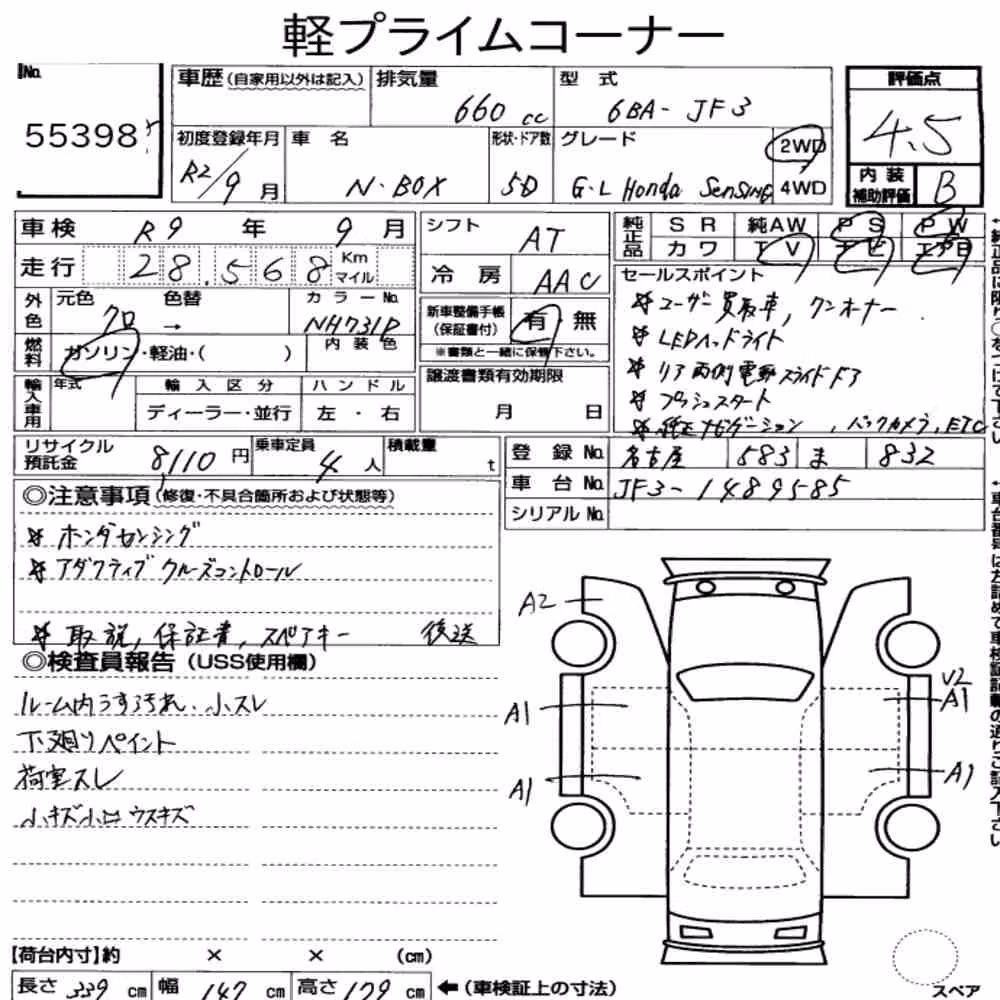 軽プライムコーナー
No.
55398
車歴(自家用以外は記入)
排気量
660 cc
型 式
6BA-JF3
評価点
4.5
初度登録年月
R2/9 月
車 名
N-BOX
形状・ドア数
5D
グレード
G・L Honda SENSING
2WD
4WD
内装
補助評価
B
車検
R9 年 9 月
走行
28.568
Km
マイル
シフト
AT
冷 房
AAC
純正品
S R
純AW
P S
P W
カ ワ
T V
ナ ビ
エアB
セールスポイント
ユーザー買取車, ワンオーナー
LEDヘッドライト
リア両側電動スライドドア
プッシュスタート
純正ナビゲーション, バックカメラ, ETC
外色
元色
色替
クロ →
カラーNo.
NH731P
燃料
ガソリン・軽油・( )
内 装 色
新車整備手帳
(保証書付)
有 無
※書類と一緒に保管下さい。
輸入車用
年式
輸 入 区 分
ハ ン ド ル
ディーラー・並行
左 ・ 右
譲渡書類有効期限
月 日
リサイクル
預託金
8110 円
乗車定員
4 人
積載量
t
登 録 No.
名古屋 583 ま 832
車 台 No.
JF3-1489585
シリアル No.
◎注意事項(修復・不具合箇所および状態等)
ホンダセンシング
アダクティブ クルーズコントロール
取説, 保証書, スペアキー 後送
◎検査員報告(USS使用欄)
ルーム内うす汚れ、小スレ
下廻りペイント
荷室スレ
小キズ小凹ウスキズ
A2
A1
A1
U2
A1
A1
【荷台内寸】約 × × (cm)
長さ 339 cm
幅 147 cm
高さ 179 cm
←(車検証上の寸法)
スペア